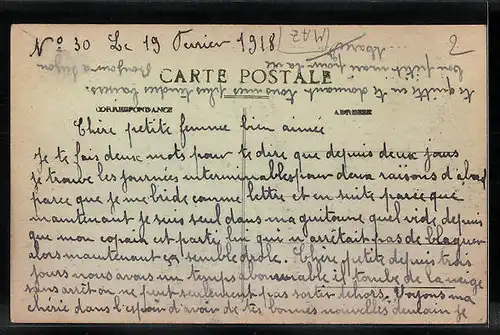 N° 30 Le 19 Fevrier 1918
MAZ
2
CARTE POSTALE
CORRESPONDANCE
ADRESSE
Chère petite femme bien aimée
Je te fais deux mots pour te dire que depuis deux jours
je trouve les journées interminables pour deux raisons d'abord
parce que je me bride comme lettre et en suite parce que
maintenant je suis seul dans ma guitoune quel vide depuis
que mon copain est parti lui qui n'arrêtait pas de blaguer
alors maintenant ça semble drole. Chère petite depuis trois
jours nous avons un temps abominable il tombe de la neige
sans arrêt on ne peut seulement pas sortir dehors. Voyons ma
chérie dans l'espoir d'avoir de tes bonnes nouvelles demain Je
te quitte en te donnant tous mes plus tendres baisers.
ton petit mari pour la vie